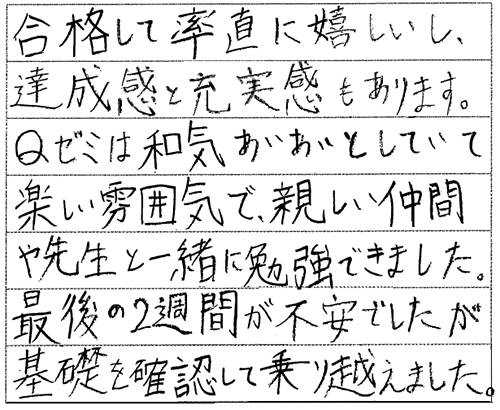 合格して率直に嬉しいし、
達成感と充実感もあります。
Qゼミは和気あいあいとしていて
楽しい雰囲気で、親しい仲間
や先生と一緒に勉強できました。
最後の2週間が不安でしたが
基礎を確認して乗り越えました。